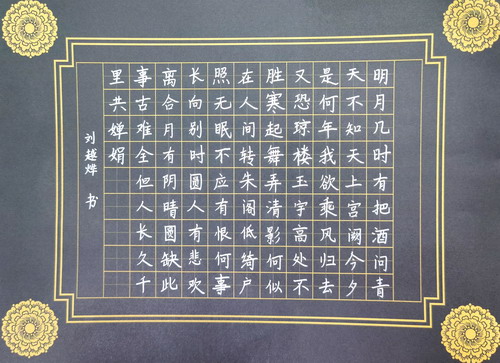 明月几时有把酒问青
天不知天上宫阙今夕
是何年我欲乘风归去
又恐琼楼玉宇高处不
胜寒起舞弄清影何似
在人间转朱阁低绮户
照无眠不应有恨何事
长向别时圆人有悲欢
离合月有阴晴圆缺此
事古难全但人长久千
里共婵娟
刘越烨 书